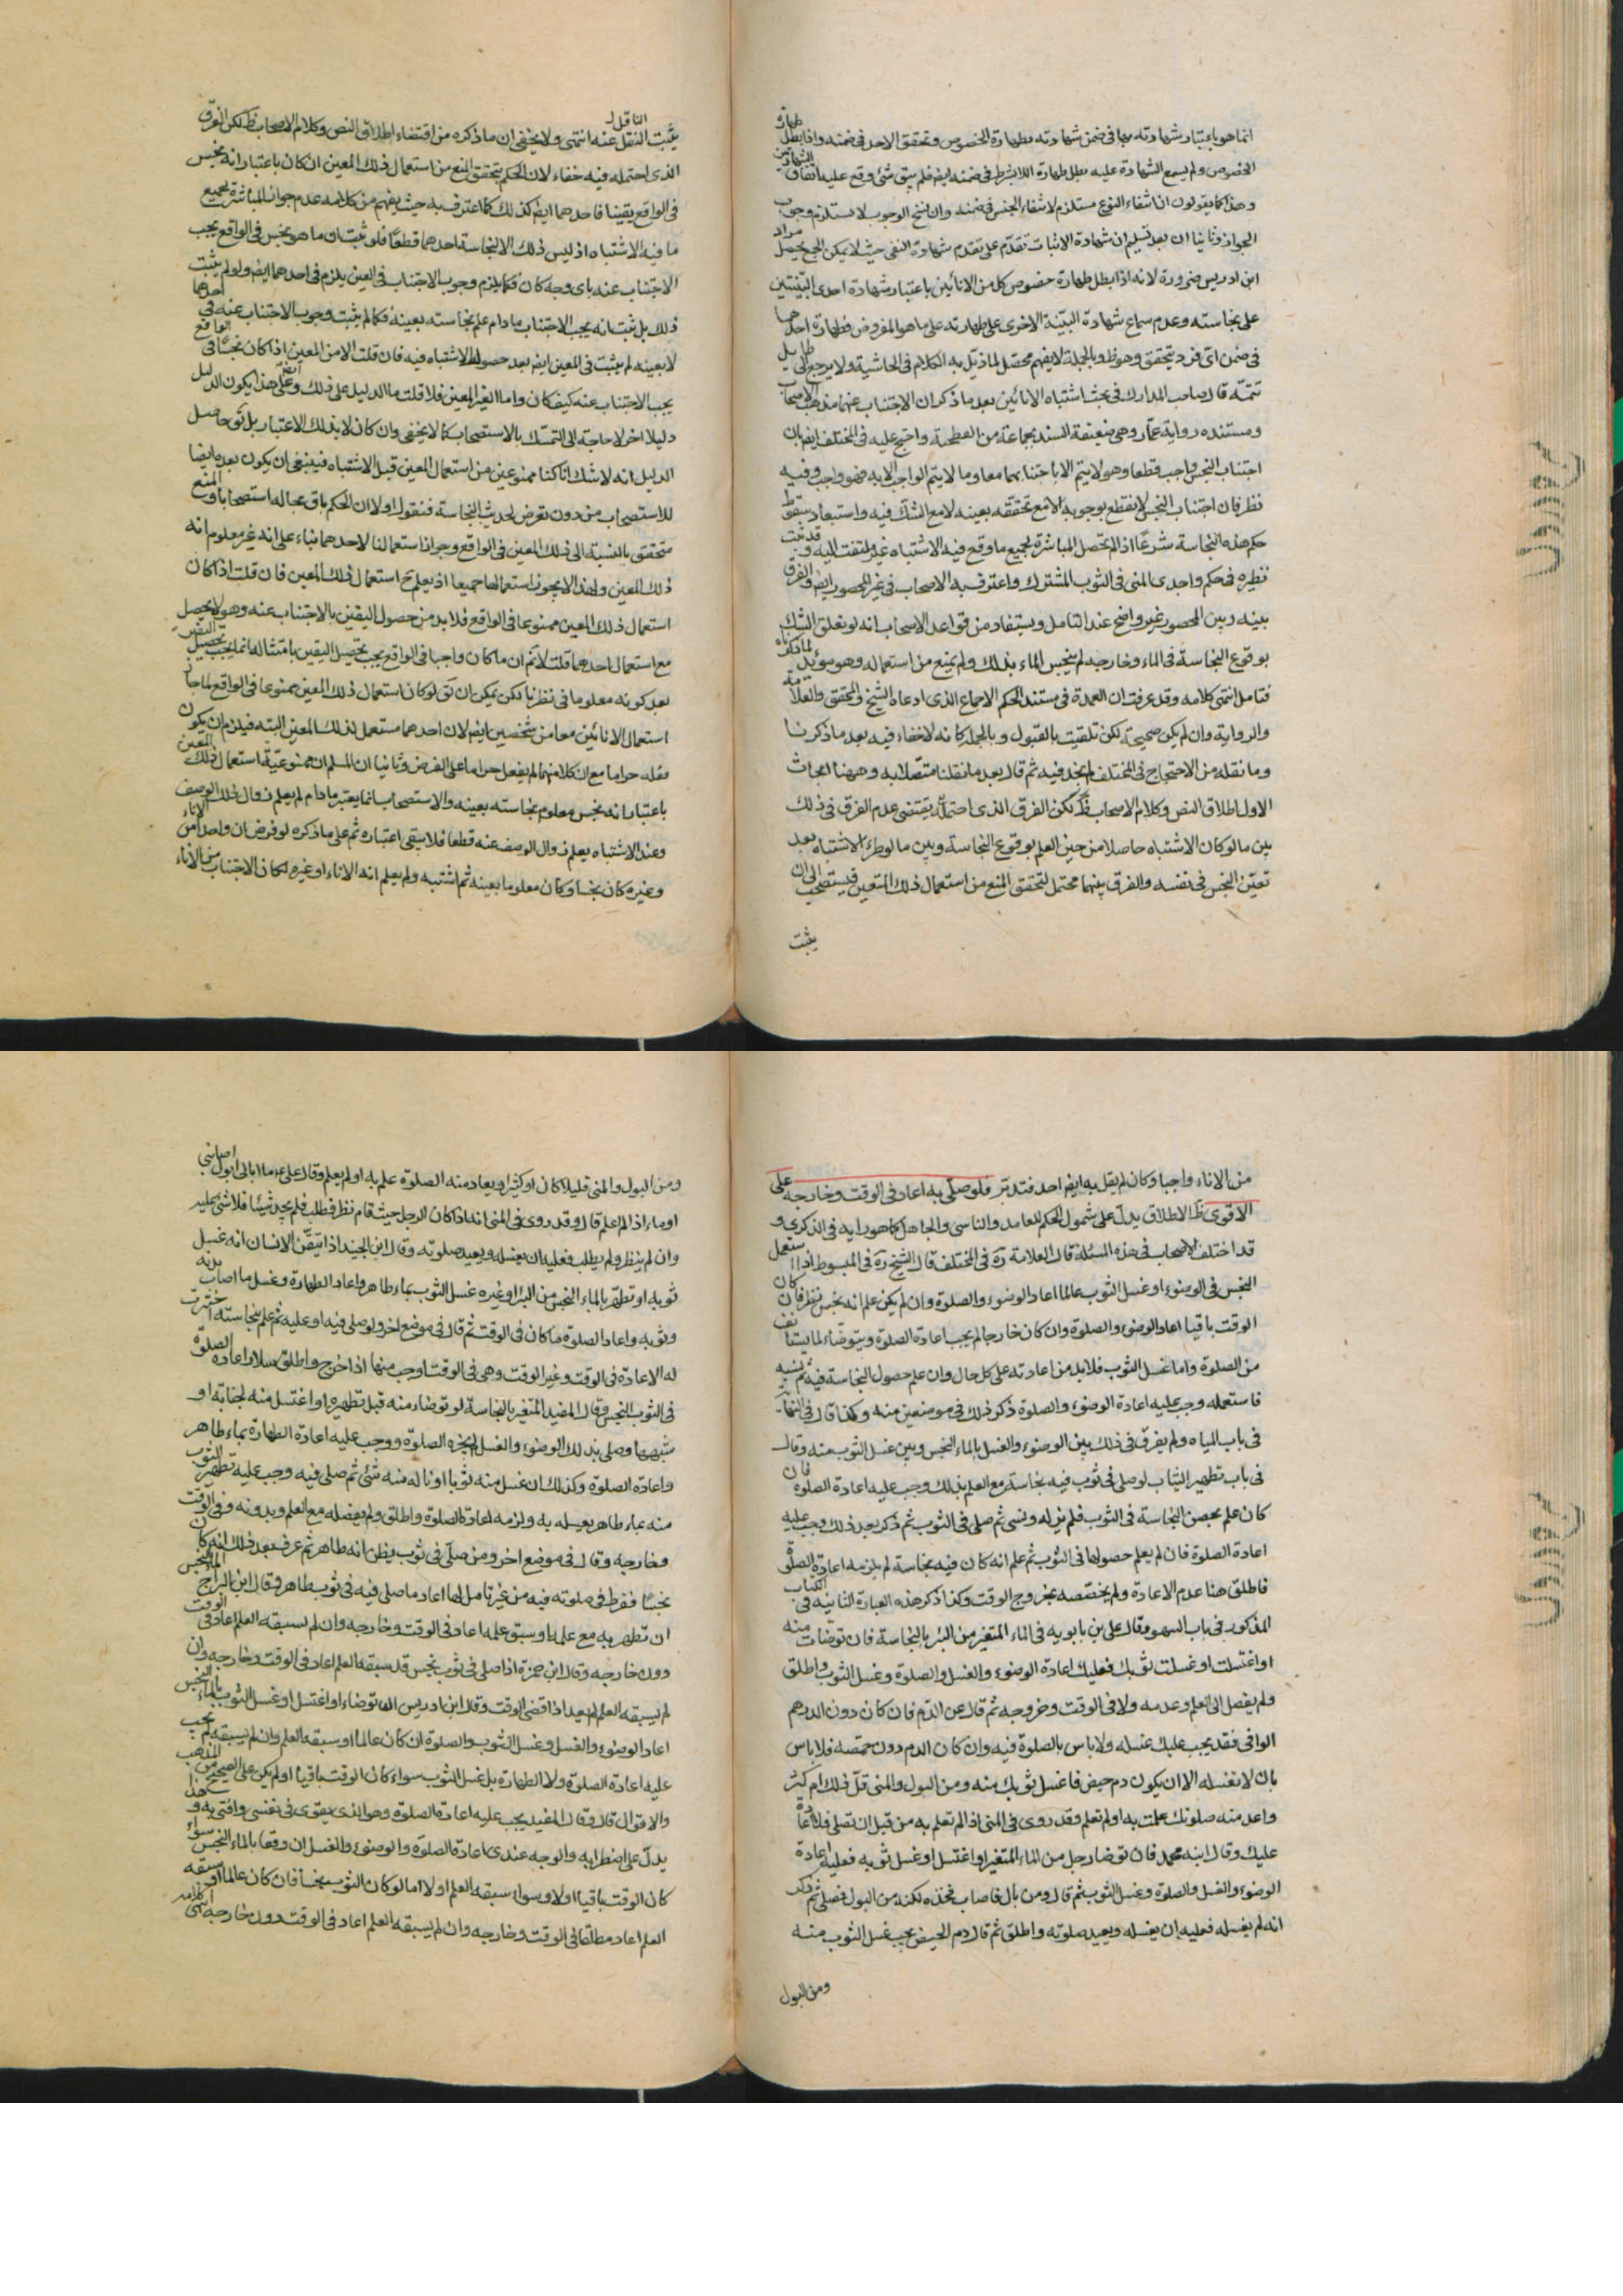 انما هو باعتبار شهادته بها فى ضمن شهادته بطهارة الخصوص وتحقق الاحد فى ضمنه واذا بطل طهارة
الخصوص ولم يسمع الشهادة عليه بطل طهارة اللابشرط فى ضمنه ايضا فلم يبق شئ وقع عليه اتفاق الشهادتين
وهذا كما يقولون ان انتفاء النوع مستلزم لانتفاء الجنس فى ضمنه وان نسخ الوجوب لا يستلزم وجوب
الجواز وثانيا ان بعد تسليم ان شهادة الاثبات تقدم على تقدم شهادة النفى حيث لا يمكن الجمع يحصل مراد
ابن ادريس ضرورة لانه اذا بطل طهارة خصوص كل من الانائين باعتبار شهادة احدى البينتين
على نجاسته وعدم سماع شهادة البينة الاخرى على طهارته على ما هو المفروض فطهارة احدهما
فى ضمن اى فرد يتحقق وهو ظ وبالجملة لا يفهم محصل لما ذيل به الكلام فى الحاشية ولا يرجع الى طايل
تتمة قال صاحب المدارك فى بحث اشتباه الانائين بعد ما ذكر ان الاجتناب عنهما مذهب الاصحاب
ومستنده رواية عمار وهى ضعيفة السند بجماعة من الفطحية واحتج عليه فى المختلف ايضا بان
اجتناب النجس واجب قطعا وهو لا يتم الا باجتنابهما معا وما لا يتم الواجب الا به فهو واجب وفيه
نظر فان اجتناب النجس لا يقطع بوجوبه الا مع تحققه بعينه لا مع الشك فيه واستبعاد سقوط
حكم هذه النجاسة شرعا اذا لم يحصل المباشرة بجميع ما وقع فيه الاشتباه غير ملتفت اليه وقد ثبت
نظيره فى حكم واجدى المنى فى الثوب المشترك واعترف به الاصحاب فى غير المحصور ايضا والفرق
بينه وبين المحصور غير واضح عند التامل ويستفاد من قواعد الاصحاب انه لو تعلق الشك
بوقوع النجاسة فى الماء وخارجه لم ينجس الماء بذلك ولم يمنع من استعماله وهو مؤيد لما ذكرناه
فتامل انتهى كلامه وقد عرفت ان العمدة فى مستند الحكم الاجماع الذى ادعاه الشيخ والمحقق والعلامة
والرواية وان لم يكن صحيحة لكن تلقيت بالقبول وبالجملة كانه لا خفاء فيه بعد ما ذكرنا
وما نقله من الاحتجاج فى المختلف لم نجد فيه ثم قال بعد ما نقلنا متصلا به وههنا ابحاث
الاول اطلاق النص وكلام الاصحاب ظ لكن الفرق الذى احتمله يقتضى عدم الفرق فى ذلك
بين ما لو كان الاشتباه حاصلا من حين العلم بوقوع النجاسة وبين ما لو طرء الاشتباه بعد
تعين النجس فى نفسه والفرق بينهما محتمل لتحقق المنع من استعمال ذلك المتعين فيستصحب الى ان
يثبت
يثبت الناقل النقل عنه انتهى ولا يخفى ان ما ذكره من اقتضاء اطلاق النص وكلام الاصحاب ظ لكن الفرق
الذى احتمله فيه خفاء لان الحكم بتحقق المنع من استعمال ذلك المعين ان كان باعتبار انه نجس
فى الواقع يقينا فاحدهما ايضا كذلك كما اعترف به حيث يفهم من كلامه عدم جواز المباشرة بجميع
ما فيه الاشتباه اذ ليس ذلك الا لنجاسة احدهما قطعا فلو ثبت ان ما هو نجس فى الواقع يجب
الاجتناب عنه باى وجه كان فكما يلزم وجوب الاجتناب فى العين يلزم فى احدهما ايضا ولو لم يثبت
ذلك بل ثبت انه يجب الاجتناب ما دام علم نجاسته بعينه فكما لم يثبت وجوب الاجتناب عنه فى احدهما
لا بعينه لم يثبت فى المعين ايضا بعد حصول الاشتباه فيه فان قلت الامر المعين اذا كان نجسا فى الواقع
يجب الاجتناب عنه كيف كان واما الغير المعين فلا قلت ما الدليل على ذلك وعلى هذا يكون الدليل
دليلا اخر لا حاجة الى التمسك بالاستصحاب كما لا يخفى وان كان لا بذلك الاعتبار بل نق حاصل
الدليل انه لا شك انا كنا ممنوعين من استعمال المعين قبل الاشتباه فينبغى ان يكون بعده ايضا
للاستصحاب من دون تعرض لحديث النجاسة فنقول اولا ان الحكم باق بحاله استصحابا والمنع
متحقق بالنسبة الى ذلك المعين فى الواقع وجواز استعمالنا لاحدهما بناء على انه غير معلوم انه
ذلك المعين ولهذا لا يجوز استعمالها جميعا اذ يعلم ح استعمال ذلك المعين فان قلت اذا كان
استعمال ذلك المعين ممنوعا فى الواقع فلا بد من حصول اليقين بالاجتناب عنه وهو لا يحصل
مع استعمال احدهما قلت لا نم ان ما كان واجبا فى الواقع يجب تحصيل اليقين بامتثاله انما يجب تحصيل اليقين
بعد كونه معلوما فى نظرنا لكن يمكن ان نق لو كان استعمال ذلك المعين ممنوعا فى الواقع لما جاز
استعمال الانائين معا من شخصين ايضا لان احدهما مستعمل لذلك المعين البته فيلزم ان يكون
فعله حراما مع ان كلا منهما لم يفعل حراما على الفرض وثانيا ان المسلم ان ممنوعية استعمال ذلك المعين
باعتبار انه نجس معلوم نجاسته بعينه والاستصحاب انما يعتبر ما دام لم يعلم زوال ذلك الوصف
وعند الاشتباه يعلم زوال الوصف عنه قطعا فلا يبقى اعتباره ثم على ما ذكره لو فرض ان واحدا من الاناء
وغيره كان نجسا وكان معلوما بعينه ثم اشتبه ولم يعلم انه الاناء او غيره لكان الاجتناب من الاناء
من الاناء واجبا وكان لم يقل به ايضا احد فتدبر فلو صلى به اعاد فى الوقت وخارجه على
الاقوى ظ الاطلاق يدل على شمول الحكم للعامد والناسى والجاهل كما هو رايه فى الذكرى و
قد اختلف الاصحاب فى هذه المسئلة قال العلامة ره فى المختلف قال الشيخ ره فى المبسوط اذا استعمل
النجس فى الوضوء او غسل الثوب عالما اعاد الوضوء والصلوة وان لم يكن علم انه نجس نظر فان كان
الوقت باقيا اعاد الوضوء والصلوة وان كان خارجا لم يجب اعادة الصلوة ويتوضاء لما يستانف
من الصلوة واما غسل الثوب فلا بد من اعادته على كل حال وان علم حصول النجاسة فيه ثم نسيه
فاستعمله وجب عليه اعادة الوضوء والصلوة ذكر ذلك فى موضعين منه وكذا قال فى النهاية
فى باب المياه ولم يفرق فى ذلك بين الوضوء والغسل بالماء النجس وبين غسل الثوب منه وقال
فى باب تطهير الثياب لو صلى فى ثوب فيه نجاسة مع العلم بذلك وجب عليه اعادة الصلوة فان
كان علم بحصول النجاسة فى الثوب فلم يزله ونسى ثم صلى فى الثوب ثم ذكر بعد ذلك وجب عليه
اعادة الصلوة فان لم يعلم حصولها فى الثوب ثم علم انه كان فيه نجاسة لم يلزمه اعادة الصلوة
فاطلق هنا عدم الاعادة ولم يخصصه بخروج الوقت وكذا ذكر هذه العبارة الثانية فى الكتاب
المذكور فى باب السهو وقال على بن بابويه فى الماء المتغير من البئر بالنجاسة فان توضات منه
او اغتسلت او غسلت ثوبك فعليك اعادة الوضوء والغسل والصلوة وغسل الثوب واطلق
ولم يفصل الى العلم وعدمه ولا فى الوقت وخروجه ثم قال عن الدم فان كان دون الدرهم
الوافى فقد يجب عليك غسله ولا باس بالصلوة فيه وان كان الدم دون حمصة فلا باس
بان لا تغسله الا ان يكون دم حيض فاغسل ثوبك منه ومن البول والمنى قل ذلك ام كثر
واعد منه صلوتك علمت به او لم تعلم وقد روى فى المنى اذا لم تعلم به من قبل ان تصلى فلا اعادة
عليك وقال ابنه محمد فان توضا رجل من الماء المتغير او اغتسل او غسل ثوبه فعليه اعادة
الوضوء والغسل والصلوة وغسل الثوب ثم قال ومن بال فاصاب فخذه نكتة من البول فصلى ثم ذكر
انه لم يغسله فعليه ان يغسله ويعيد صلوته واطلق ثم قال دم الحيض يجب غسل الثوب منه
ومن البول
ومن البول والمنى قليلا كان او كثيرا ويعاد منه الصلوة علم به او لم يعلم وقال على ع ما ابالى ابول اصابنى
او ماء اذا لم اعلم قال وقد روى فى المنى انه اذا كان الرجل حيث قام نظر فطلب فلم يجد شيئا فلا شئ عليه
وان لم ينظر ولم يطلب فعليه ان يغسله ويعيد صلوته وقال ابن الجنيد اذا تيقن الانسان انه غسل
ثوبه او تطهر بالماء النجس من البئر او غيره غسل الثوب بماء طاهر واعاد الطهارة وغسل ما اصاب بدنه
وثوبه واعاد الصلوة ما كان فى الوقت ثم قال فى موضع اخر ولو صلى فيه او عليه ثم علم بنجاسته اخترت
له الاعادة فى الوقت وغير الوقت وهى فى الوقت اوجب منها اذا خرج واطلق سلار اعادة الصلوة
فى الثوب النجس وقال المفيد المتغير بالنجاسة لو توضاء منه قبل تطهيره او اغتسل منه لجنابة او
شبهها وصلى بذلك الوضوء والغسل لم يجزه الصلوة ووجب عليه اعادة الطهارة بماء طاهر
واعادة الصلوة وكذلك ان غسل منه ثوبا او ناله منه شئ ثم صلى فيه وجب عليه تطهير الثوب
منه بماء طاهر يغسله به ولزمه اعادة الصلوة واطلق ولم يفصله مع العلم وبدونه وفى الوقت
وخارجه وقال فى موضع اخر ومن صلى فى ثوب يظن انه طاهر ثم عرف بعد ذلك انه كان
نجسا ففرط فى صلوته فيه من غير تامل لها اعاد ما صلى فيه فى ثوب طاهر وقال ابن البراج الماء النجس
ان تطهر به مع علمه او سبق علمه اعاد فى الوقت وخارجه وان لم يسبقه العلم اعاد فى الوقت
دون خارجه وقال ابن حمزة اذا صلى فى ثوب نجس قد سبقه العلم اعاد فى الوقت وخارجه وان
لم يسبقه العلم لم يعد اذا قضى الوقت وقال ابن ادريس اذا توضاء او اغتسل او غسل الثوب بالماء النجس
اعاد الوضوء والغسل وغسل الثوب والصلوة ان كان عالما او سبقه العلم وان لم يسبقه لم يجب
عليه اعادة الصلوة ولا الطهارة بل غسل الثوب سواء كان الوقت باقيا او لم يكن على الصحيح من المذهب
والاقوال قال وقال المفيد يجب عليه اعادة الصلوة وهو الذى يقوى فى نفسى وافتى به وهذا
يدل على اضطرابه والوجه عندى اعادة الصلوة والوضوء والغسل ان وقعا بالماء النجس سواء
كان الوقت باقيا او لا وسواء سبقه العلم او لا اما لو كان الثوب نجسا فان كان عالما او سبقه
العلم اعاد مطلقا فى الوقت وخارجه وان لم يسبقه العلم اعاد فى الوقت دون خارجه انتهى كلامه